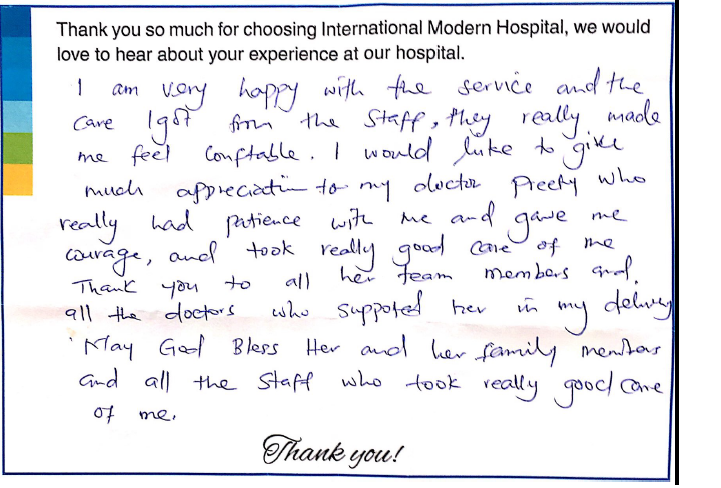 Thank you so much for choosing International Modern Hospital, we would
love to hear about your experience at our hospital.
I am very happy with the service and the
care I got from the staff, they really made
me feel conftable. I would like to give
much appreciation to my doctor Preety who
really had patience with me and gave me
courage, and took really good care of me
Thank you to all her team members and
all the doctors who suppoted her in my delivery
May God Bless Her and her family members
and all the staff who took really good care
of me.
Thank you!